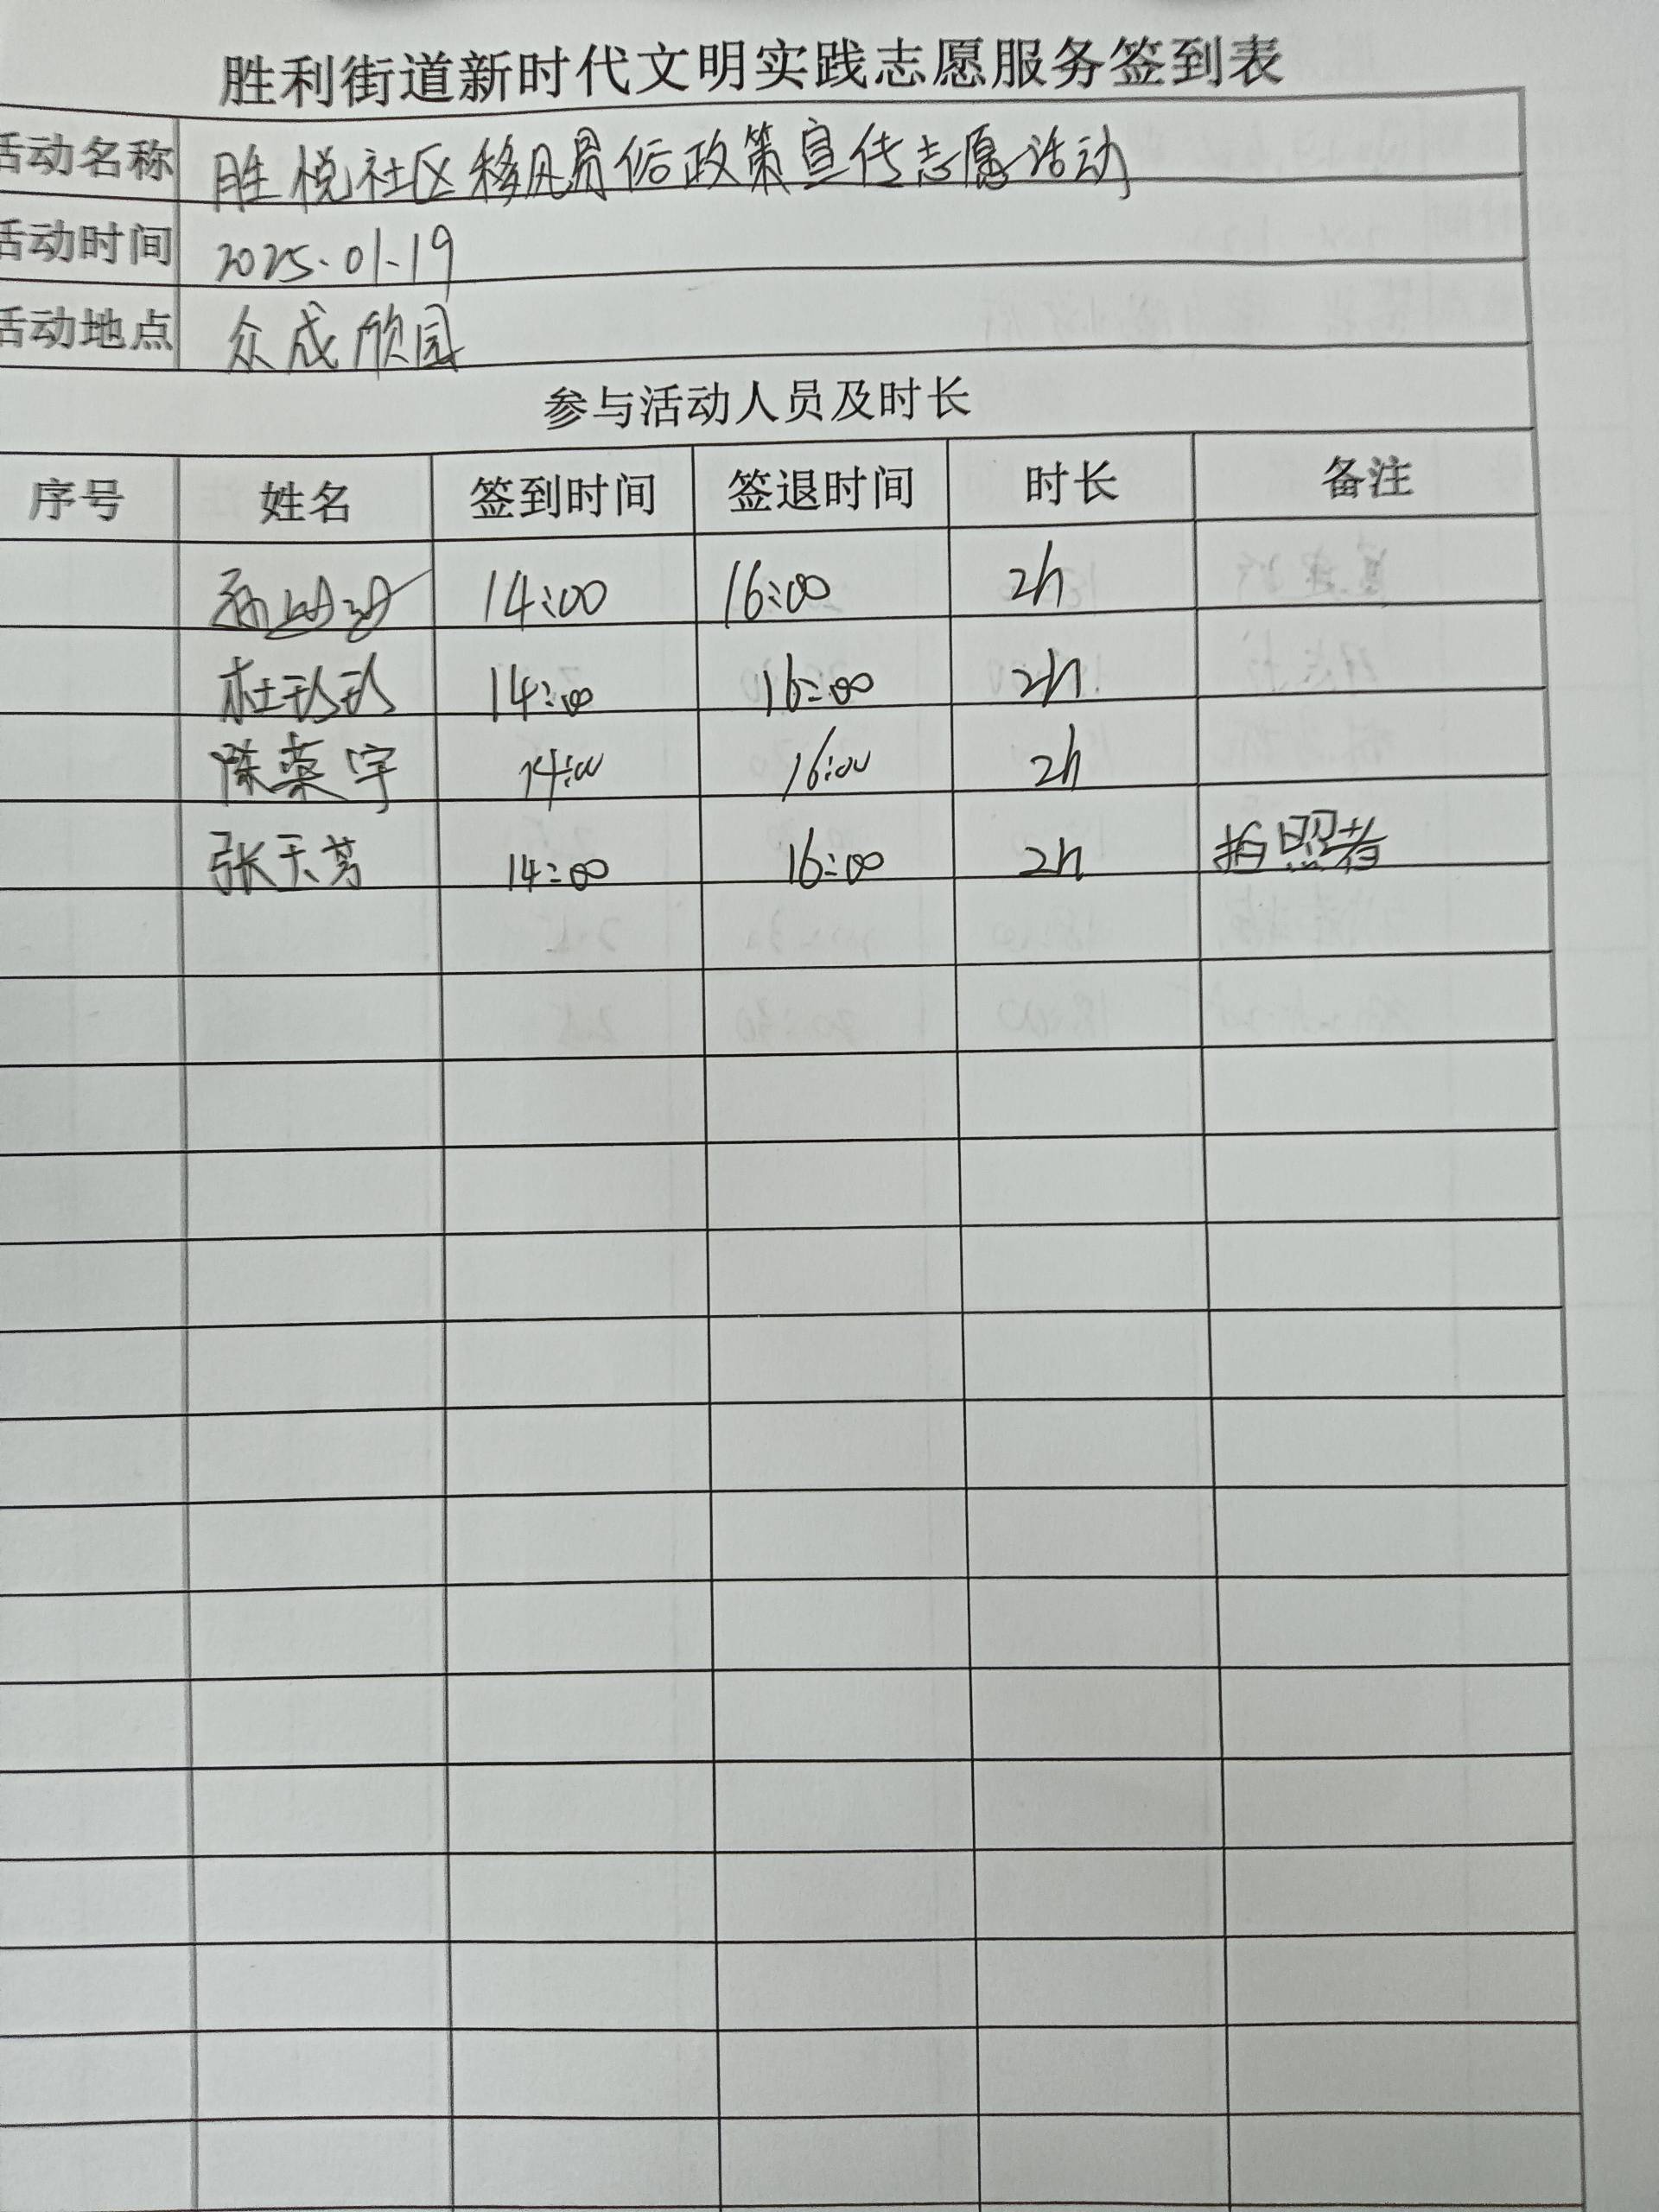 胜利街道新时代文明实践志愿服务签到表
活动名称 胜悦社区移风易俗政策宣传志愿活动
活动时间 2025.01.19
活动地点 众成欣园
参与活动人员及时长
序号 姓名 签到时间 签退时间 时长 备注
14:00 16:00 2h
杜珍珍 14:00 16:00 2h
陈燊宇 14:00 16:00 2h
张天芳 14:00 16:00 2h 拍照者